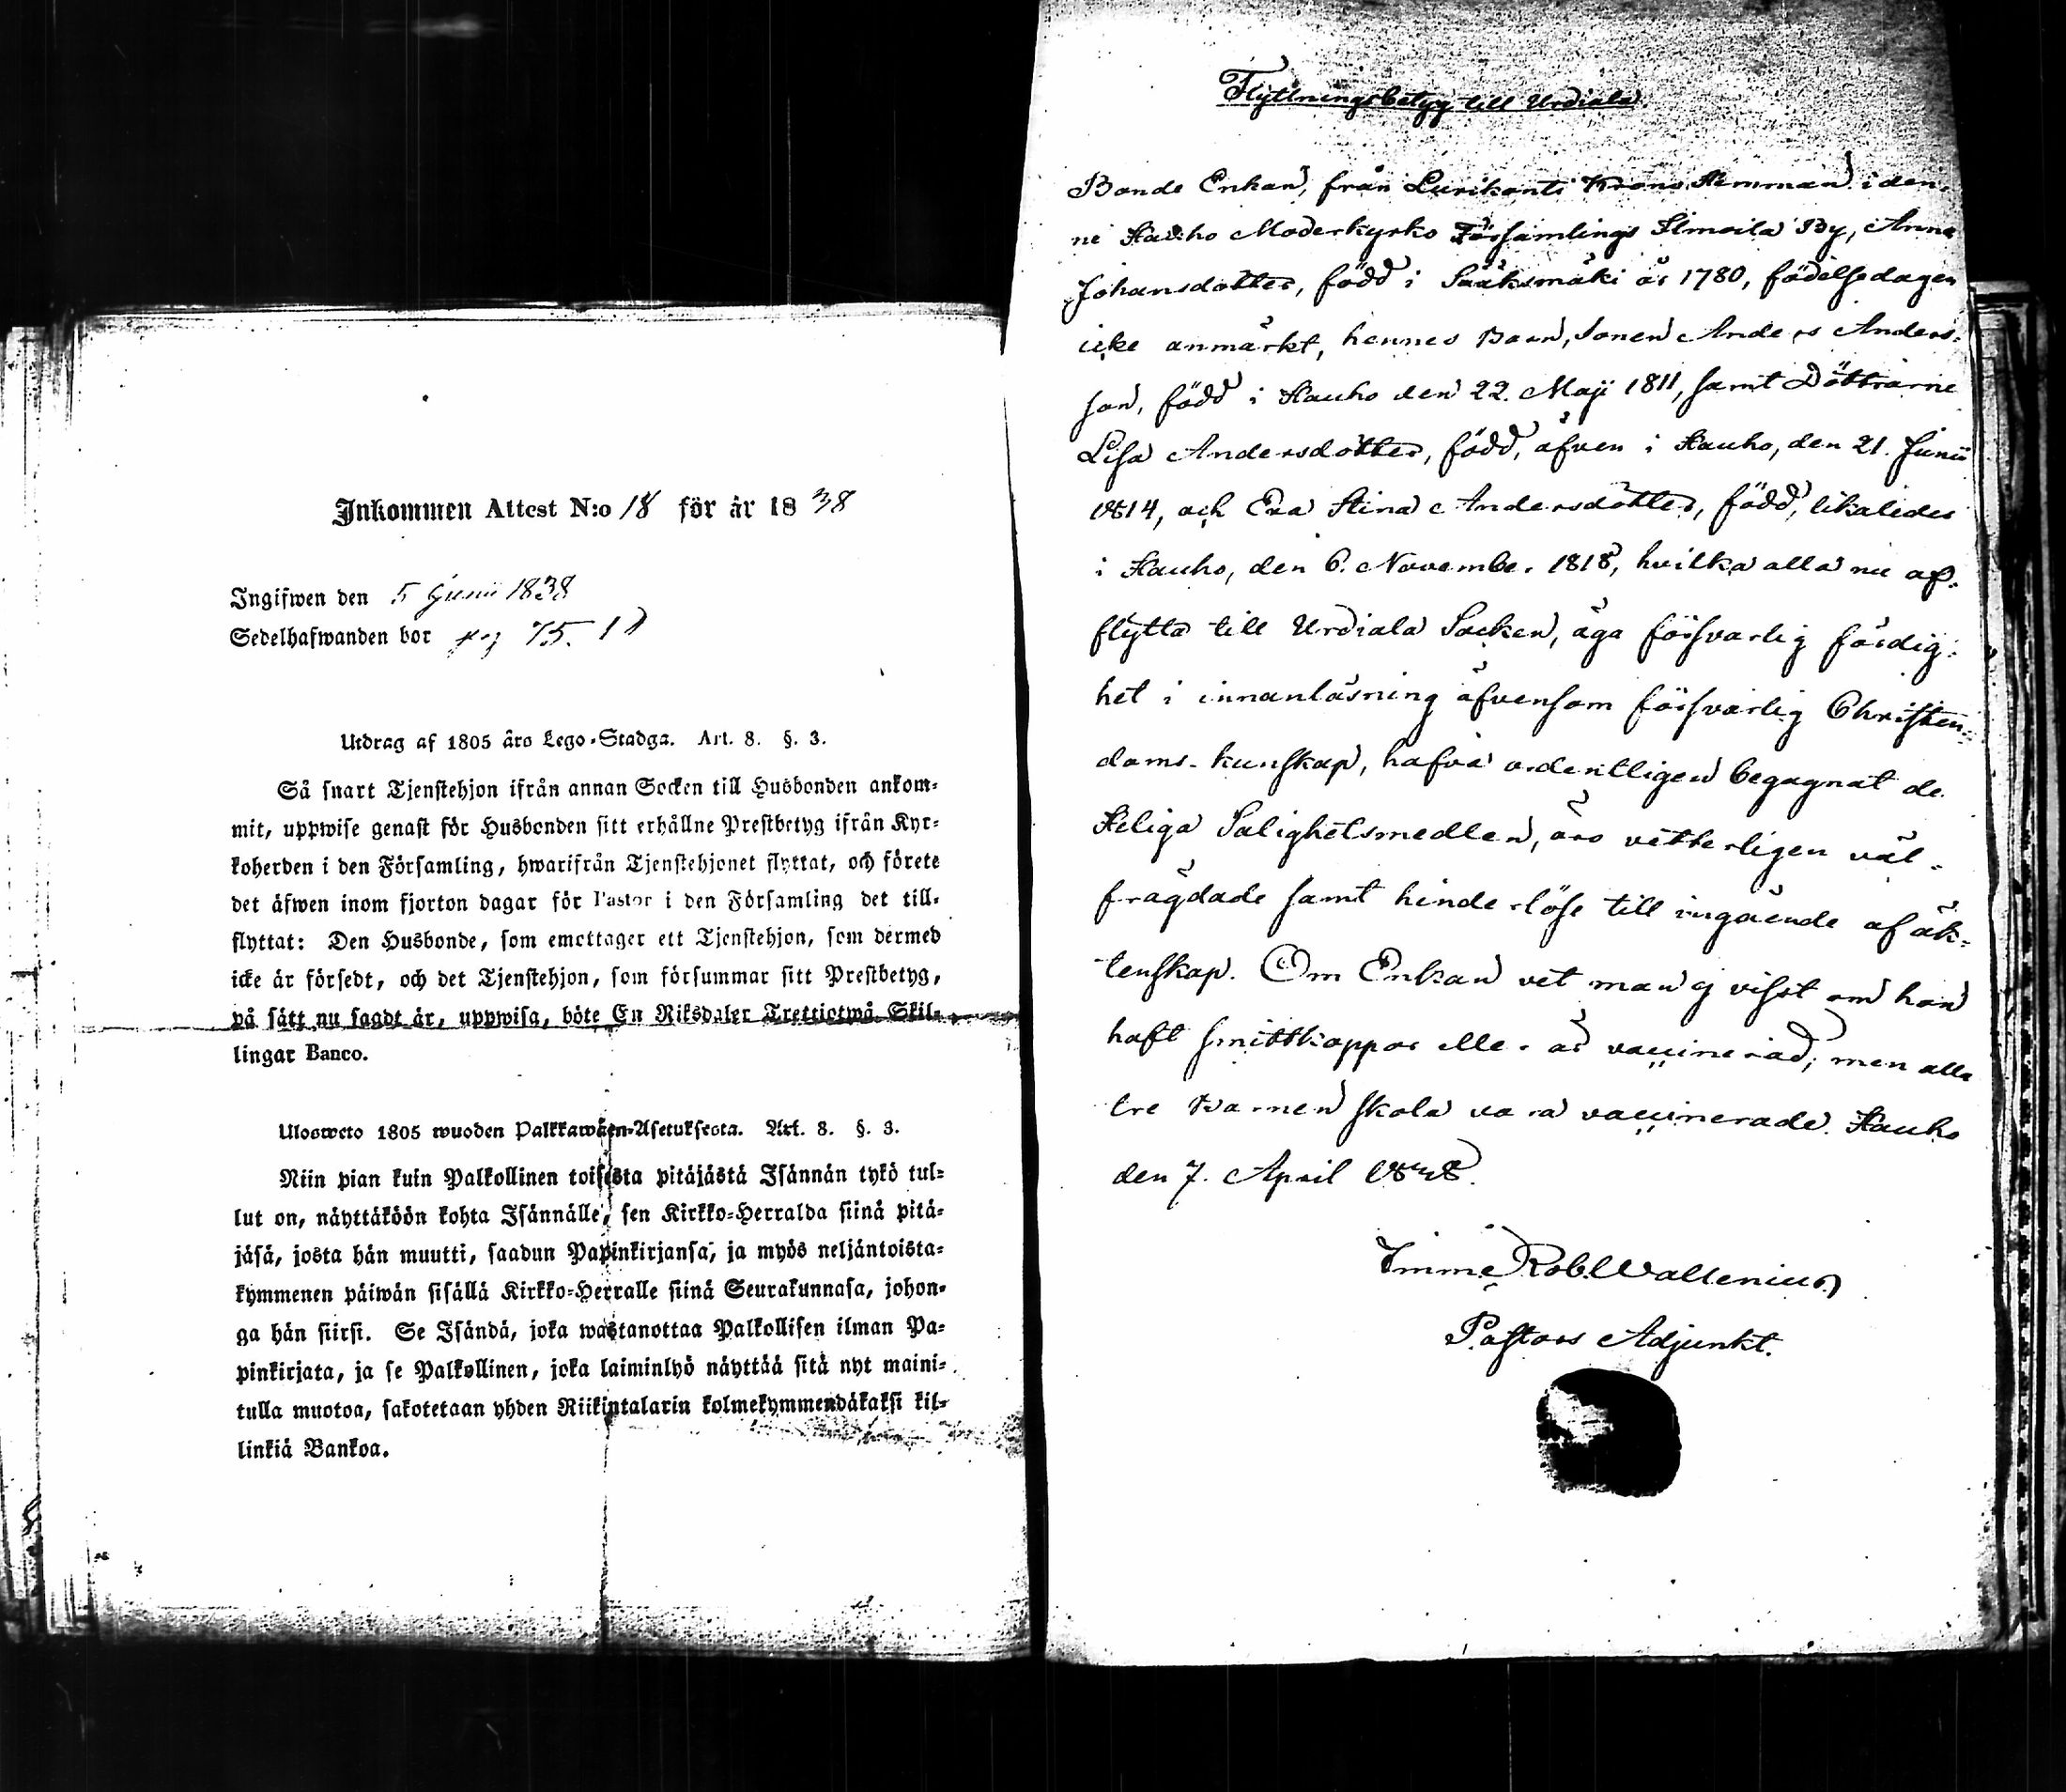 Inkommen Attest N:o 18 för år 1838
Ingifwen den 5 Junii 1838
Sedelhafwanden bor pag 75.
Utdrag af 1805 års Lego-Stadga. Art. 8. §. 3.
Så snart Tjenstehjon ifrån annan Socken till Husbonden ankom-
mit, uppwise genast för Husbonden sitt erhållne Prestbetyg ifrån Kyr-
koherden i den Församling, hwarifrån Tjenstehjonet flyttat, och förete
det äfwen inom fjorton dagar för Pastor i den Församling det till-
flyttat: Den Husbonde, som emottager ett Tjenstehjon, som dermed
icke är försedt, och det Tjenstehjon, som försummar sitt Prestbetyg,
på sätt nu sagdt är, uppwisa, böte En Riksdaler Trettiotwå Skil-
lingar Banco.
Ulosweto 1805 wuoden Palkkawäen-Asetuksesta. Art. 8. §. 3.
Niin pian kuin Palkollinen toisesta pitäjästä Isännän tykö tul-
lut on, näyttäköön kohta Isännälle, sen Kirkko-Herralda siinä pitä-
jäsä, josta hän muutti, saadun Papinkirjansa, ja myös neljäntoista-
kymmenen päiwän sisällä Kirkko-Herralle siinä Seurakunnasa, johon-
ga hän siirsi. Se Isändä, joka wastanottaa Palkollisen ilman Pa-
pinkirjata, ja se Palkollinen, joka laiminlyö näyttää sitä nyt maini-
tulla muotoa, sakotetaan yhden Riikintalarin kolmekymmendäkaksi kil-
linkiä Bankoa.
Flyttningsbetyg till Urdiala.
Bonde Enkan, från Lurikonti Krono Hemman i den-
ne Hauho Moderkyrko Församlings Ilmoila By, Anna
Johansdotter, född i Sääksmäki år 1780, födelsedagen
icke anmärkt, hennes Barn, Sonen Anders Anders-
son, född i Hauho den 22. Maji 1811, samt Döttrarne
Lisa Andersdotter, född, äfven i Hauho, den 21. Junii
1814, och Eva Stina Andersdotter, född, likaledes
i Hauho, den 6. November 1818, hvilka alla nu af-
flytta till Urdiala Socken, äga försvarlig färdig-
het i innanläsning äfvensom försvarlig Christen-
doms-kunskap, hafva ordentligen begagnat de
Heliga Salighetsmedlen, äro vetterligen väl-
frägdade samt hinderlöse till ingående af äk-
tenskap. Om Enkan vet man ej visst om hon
haft smittkoppor eller är vaccinerad; men alla
tre Barnen skola vara vaccinerade. Hauho
den 7. April 1838.
Imme Rob. Wallenius
Pastors Adjunkt.